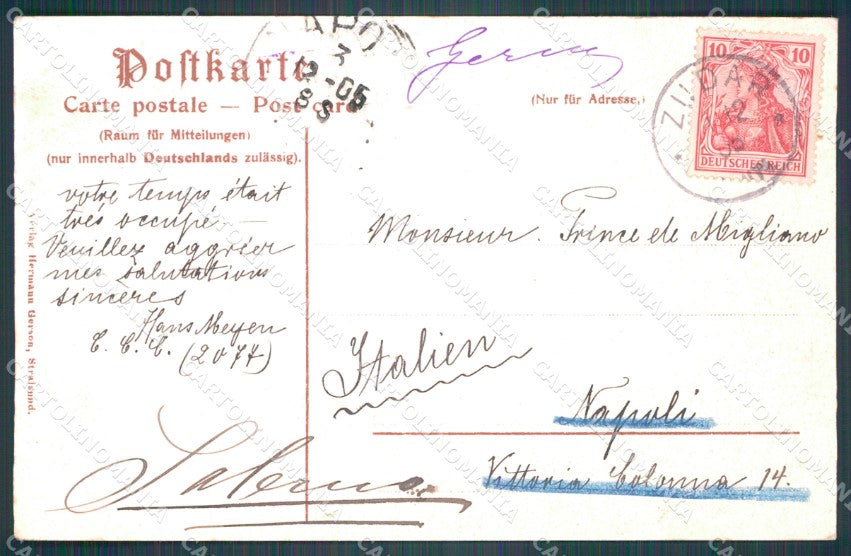 Postkarte
Carte postale — Post card
(Raum für Mitteilungen)
(nur innerhalb Deutschlands zulässig).
(Nur für Adresse.)
10 10
DEUTSCHES REICH
ZUDAR
05
votre temps était
très occupé —
Veuillez aggrier
mes salutations
sincères
Hans Meyen
C. C. C. (2077)
Monsieur. Prince de Migliano
Italien
Napoli
Vittoria Colonna 14.
Salerno
Verlag Hermann Gerson, Stralsund.
CARTOLINOMANIA